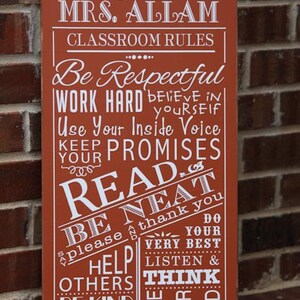 MRS. ALLAM
CLASSROOM RULES
Be Respectful
WORK HARD believe in yourself
Use Your Inside Voice
KEEP YOUR PROMISES
READ &
BE NEAT
say please and thank you
DO YOUR VERY BEST
HELP OTHERS
LISTEN & THINK
BE KIND